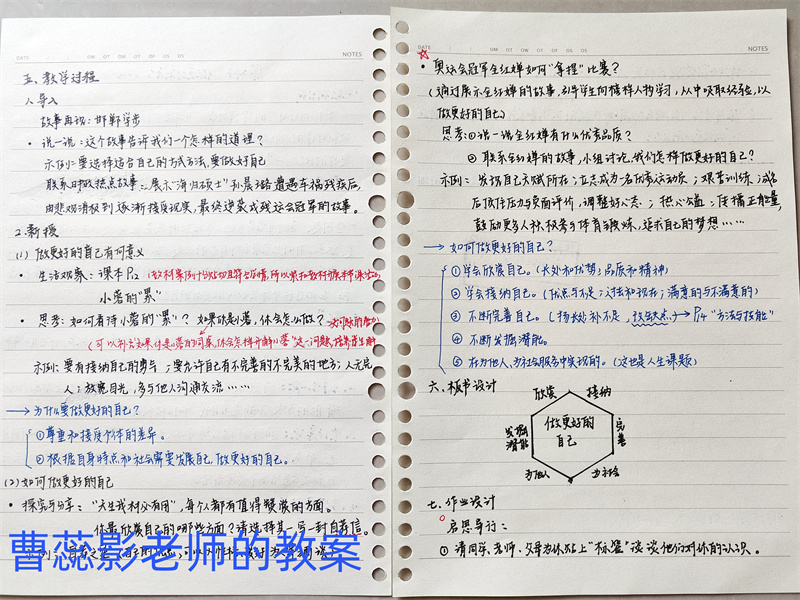 DATE
NOTES
五、教学过程
1.导入
故事再现：邯郸学步
·说一说：这个故事告诉我们一个怎样的道理？
示例：要选择适合自己的方式方法，要做好自己
联系时政热点故事：展示“海归硕士”孙晨璐遭遇车祸残疾后，
由悲观消极到逐渐接受现实，最终逆袭成残运会冠军的故事。
2.新授
(1)做更好的自己有何意义
·生活观察：课本P12
小蓉的“累”
·思考：如何看待小蓉的“累”？如果你是小蓉，你会怎么做？
示例：要有接纳自己的勇气；要允许自己有不完善的不完美的地方；人无完
人；放宽目光，多与他人沟通交流……
→为什么要做更好的自己？
①尊重和接受个体的差异。
②根据自身特点和社会需要发展自己，做更好的自己。
(2)如何做更好的自己
·探究与分享：“天生我材必有用”，每个人都有值得赞赏的方面。
你最欣赏自己的哪些方面？请选择其一写一封自荐信。
曹蕊影老师的教案
DATE
NOTES
☆
·奥运会冠军全红婵如何“拿捏”比赛？
(通过展示全红婵的故事，引导学生向榜样人物学习，从中吸取经验，以
做更好的自己)
思考：①说一说全红婵有什么优秀品质？
②联系全红婵的故事，小组讨论，我们怎样做更好的自己？
示例：发现自己天赋所在；立志成为一名优秀运动员；艰苦训练；成名
后顶住压力与负面评价，调整好心态；热心公益；传播正能量，
鼓励更多人积极参与体育与锻炼，追求自己的梦想……
→如何做更好的自己？
①学会欣赏自己。(长处和优势；品质和精神)
②学会接纳自己。(优点与不足；过往和现在；满意的与不满意的)
③不断完善自己。(扬长处补不足，找缺点)→P14“方法与技能”
④不断发掘潜能。
⑤在为他人、为社会服务中实现的。(这也是人生课题)
六、板书设计
欣赏
接纳
发掘
潜能
做更好的
自己
完
善
为他人
为社会
七、作业设计
启思导行：
①请同学、老师、父母为你贴上“标签”谈谈他们对你的认识。